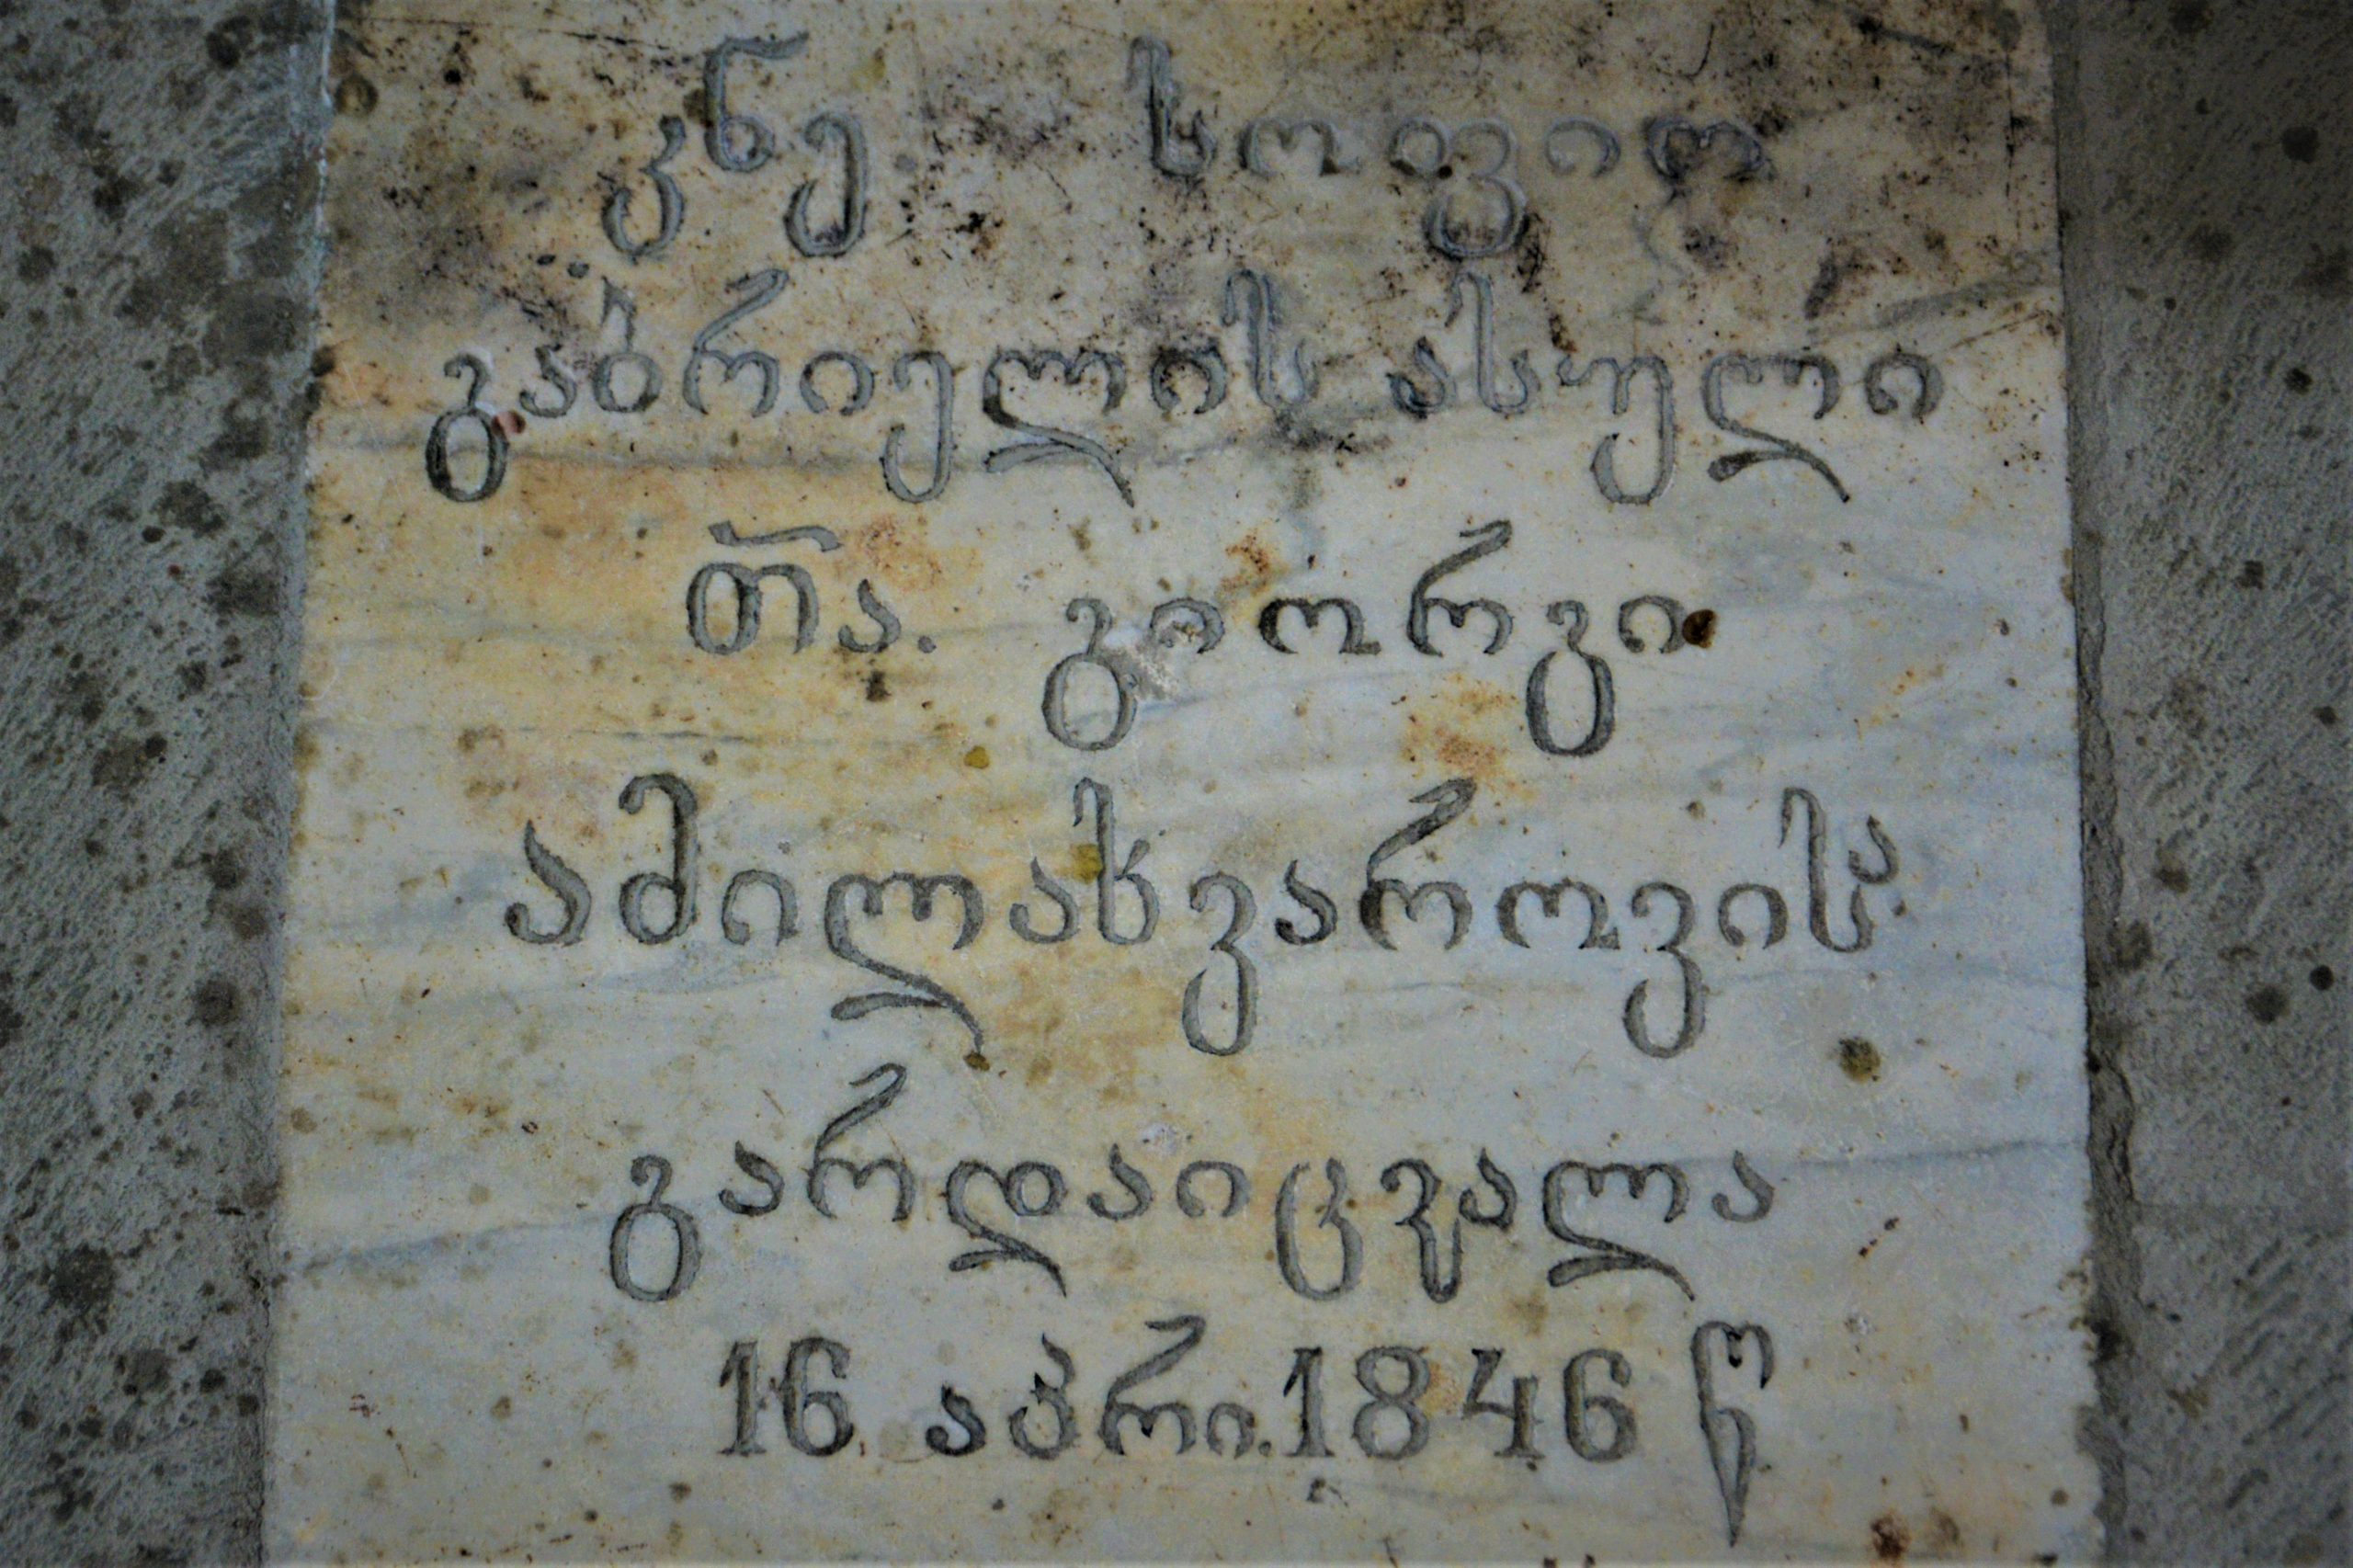 კნე სოფიო
გაბრიელის ასული
თ~ა. გიორგი
ამილახვაროვისა
გარდაიცვალა
16 აპრი. 1846 წ